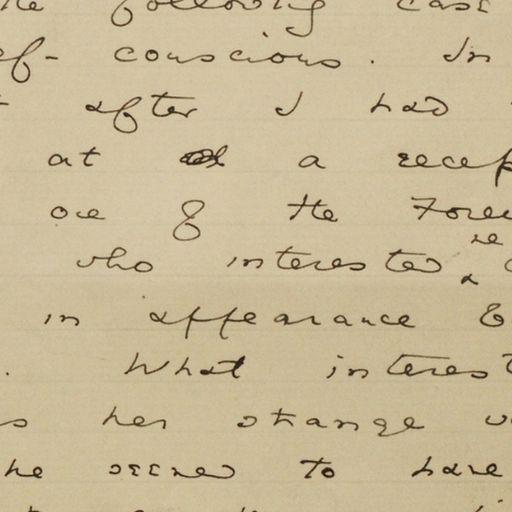 following case
conscious. In
after I had
at a recep
one of the Forei
who interested
re
in appearance &
What interest
s her strange
he seemed to have